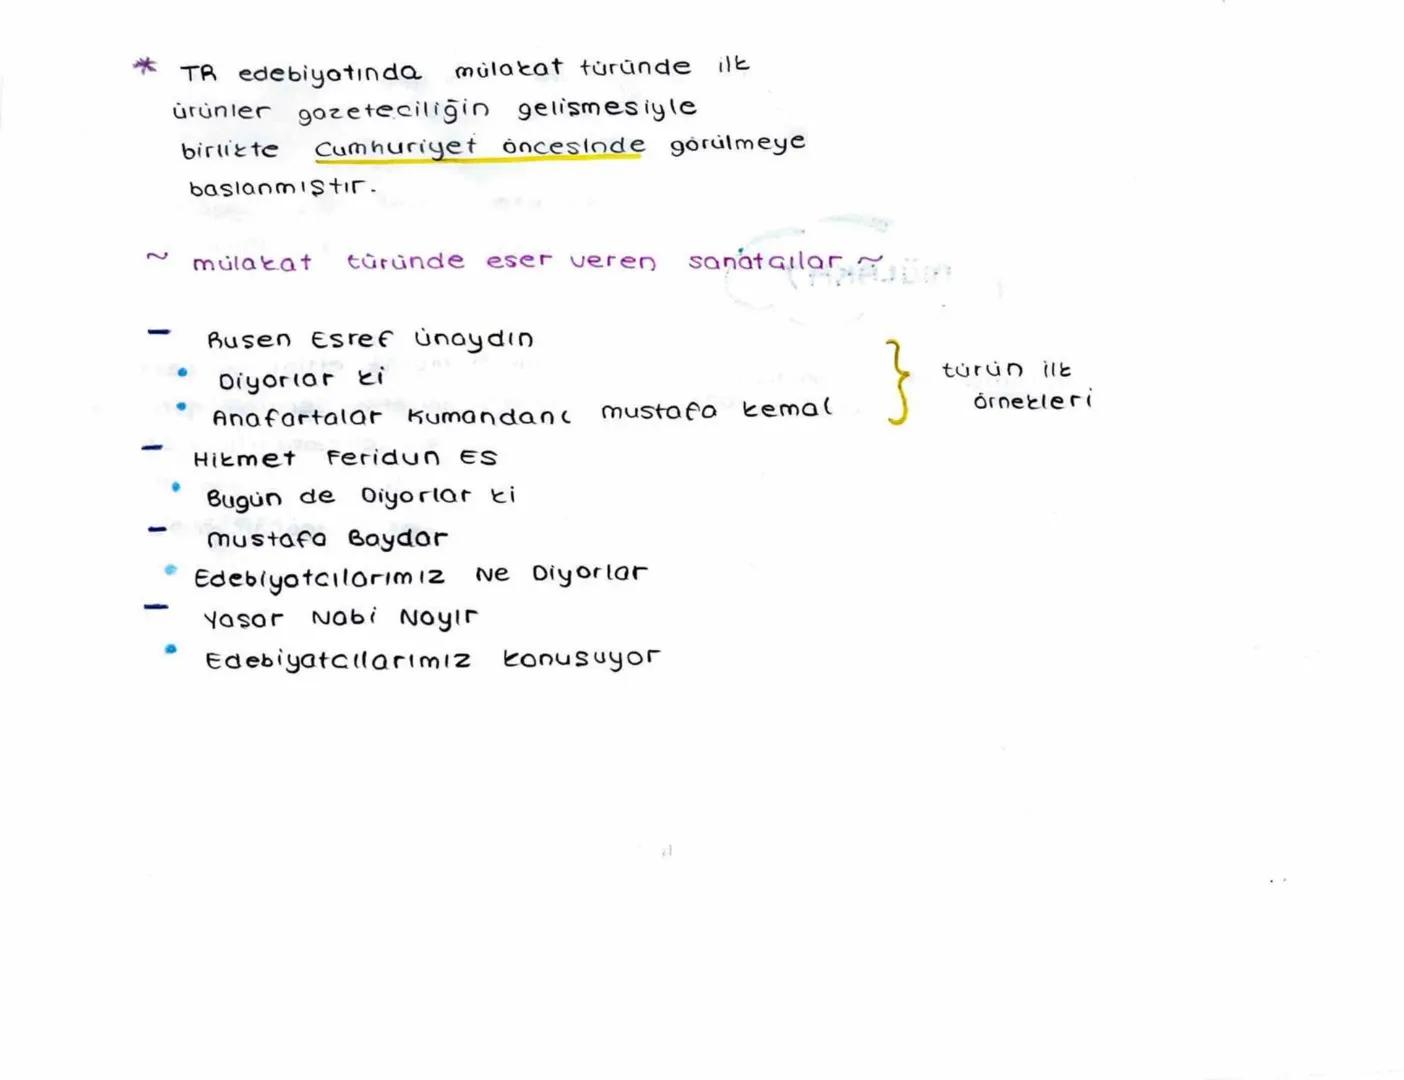 * TR edebiyatında mülakat türünde ilk
ürünler gazeteciliğin gelismesiyle
birlikte Cumhuriyet öncesinde görülmeye
baslanmıştır.
~ mülakat türünde eser veren sanatçılar ~
- Rusen Esref ünaydın
• Diyorlar ki
• Anafartalar Kumandanı mustafa kemal
} türün ilk
örnekleri
- Hikmet Feridun ES
• Bugün de Diyorlar ki
- mustafa Baydar
• Edebiyatcılarımız Ne Diyorlar
- Yasar Nabi Nayır
• Edebiyatcılarımız konusuyor